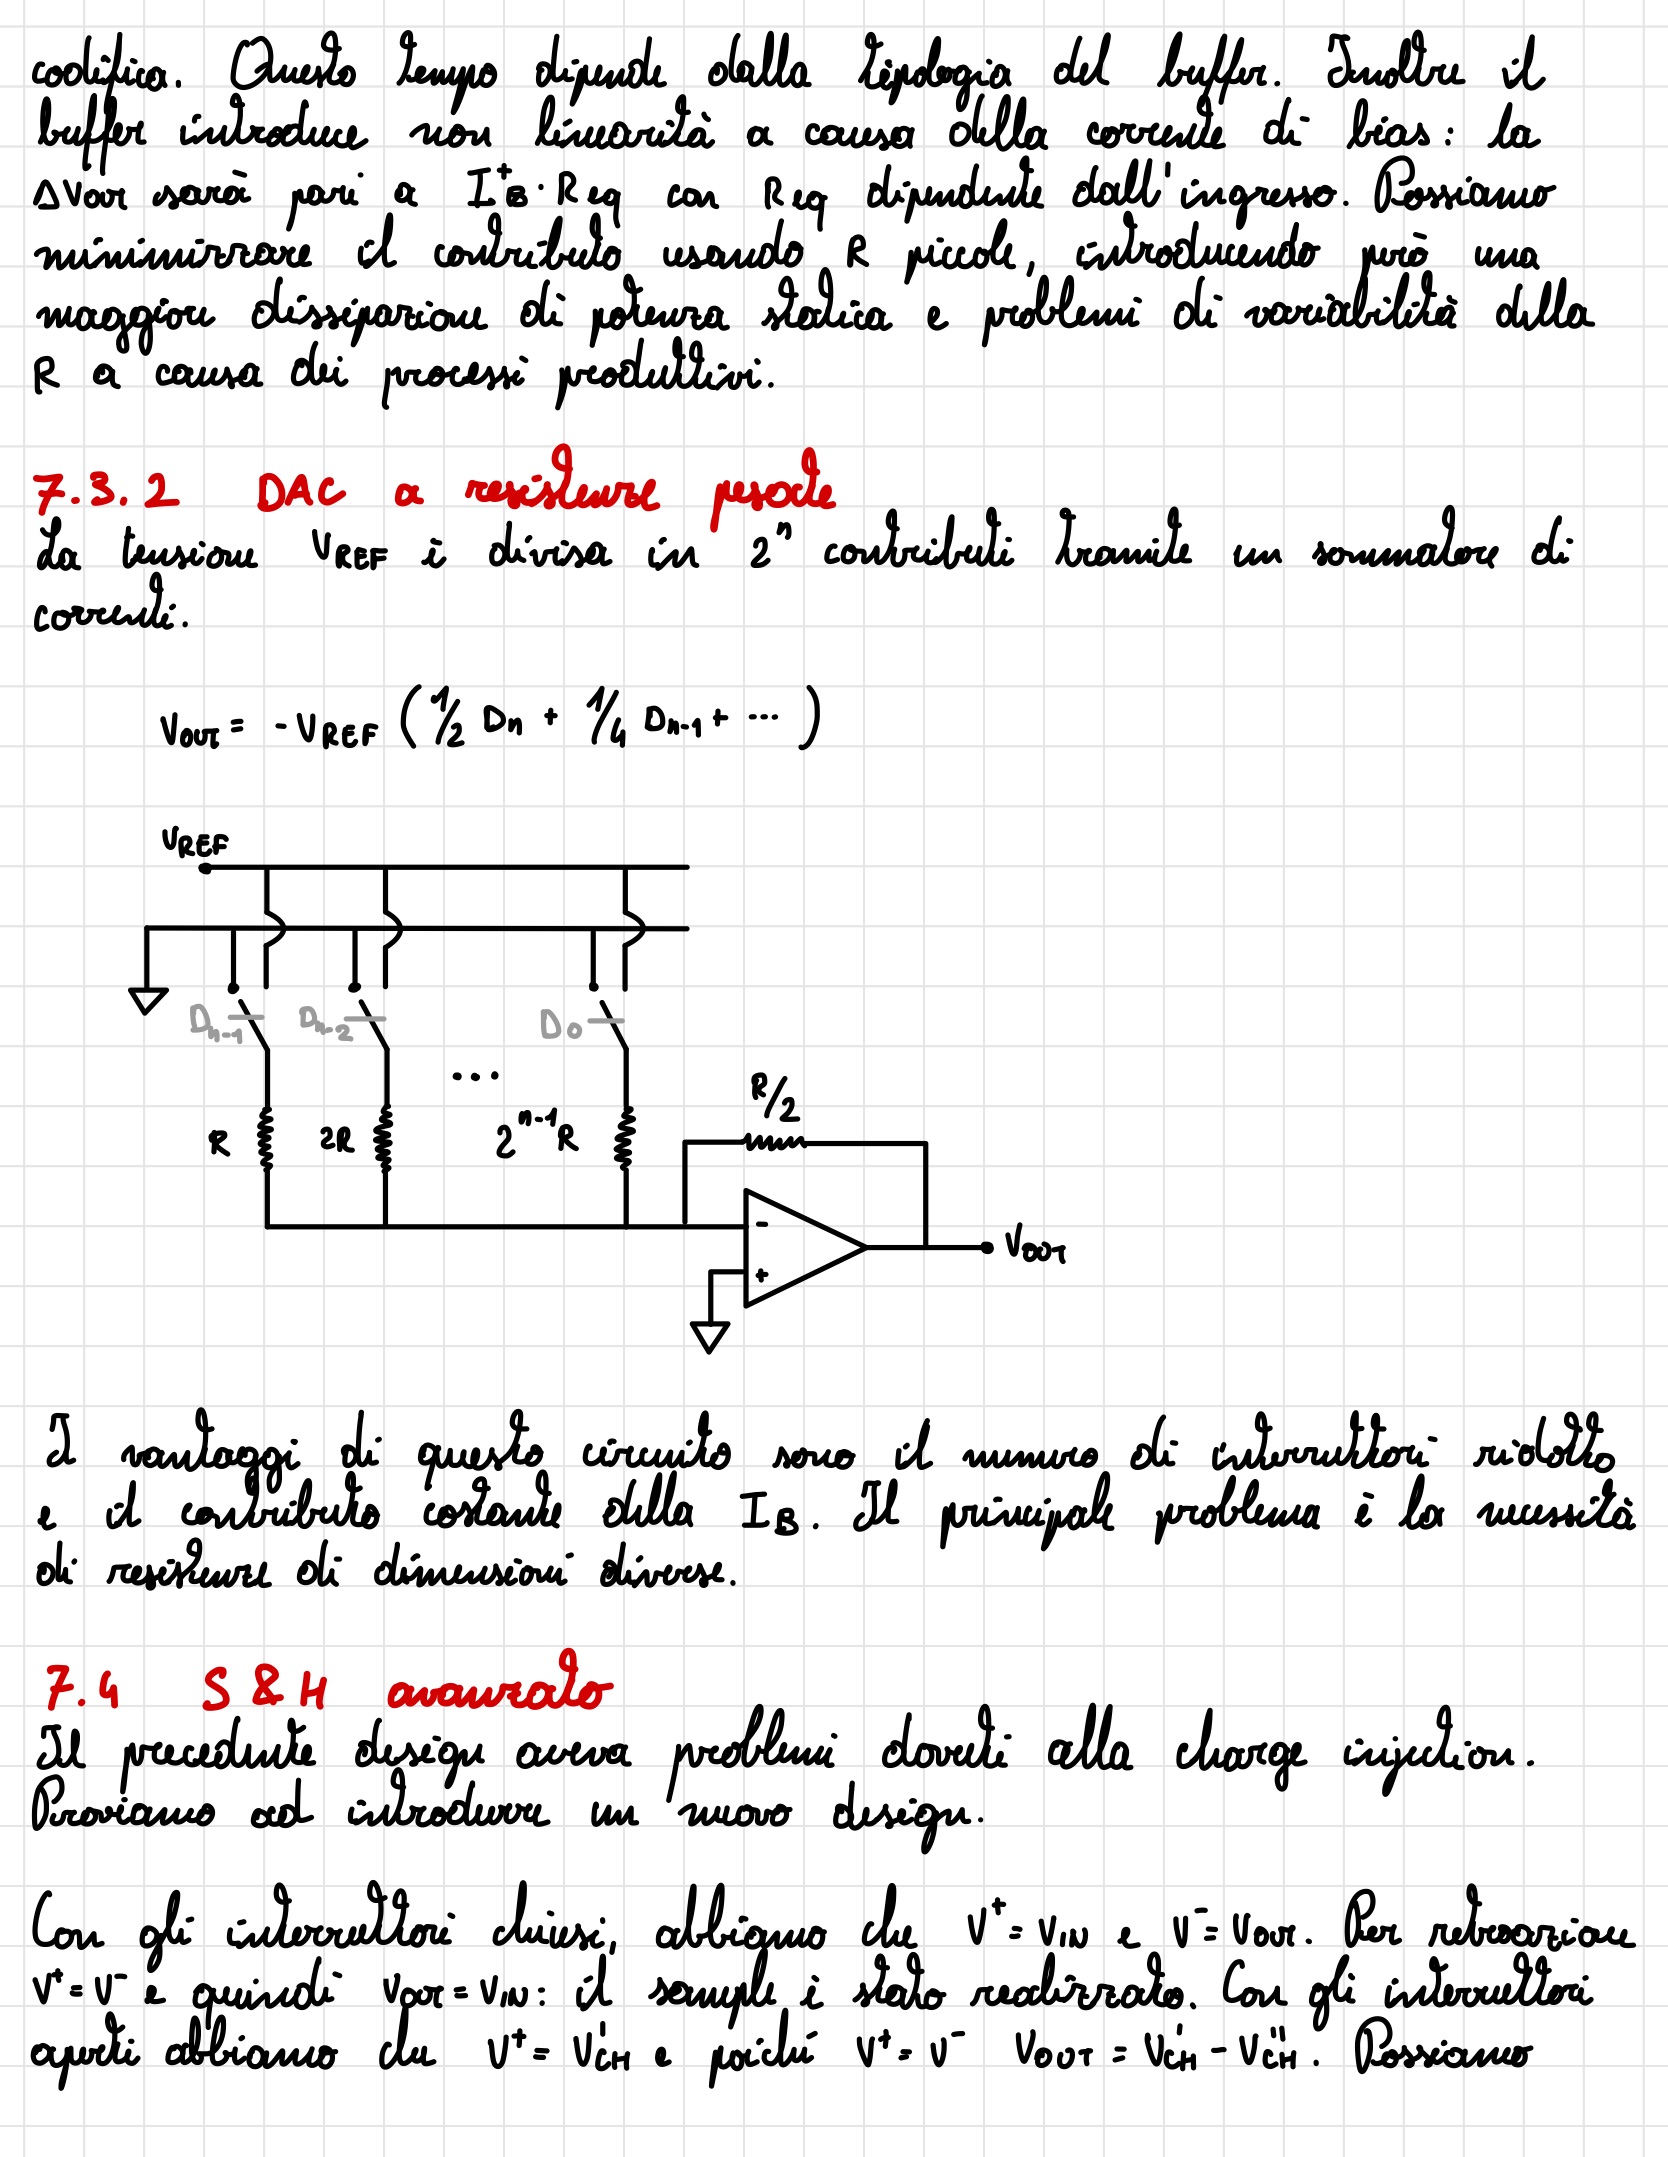 codifica. Questo tempo dipende dalla tipologia del buffer. Inoltre il
buffer introduce non linearità a causa della corrente di bias: la
ΔVout sarà pari a I⁺B · Req con Req dipendente dall'ingresso. Possiamo
minimizzare il contributo usando R piccole, introducendo però una
maggiore dissipazione di potenza statica e problemi di variabilità della
R a causa dei processi produttivi.
7.3.2 DAC a resistenze pesate
La tensione VREF è divisa in 2ⁿ contributi tramite un sommatore di
correnti.
VOUT = -VREF (1/2 Dn + 1/4 Dn-1 + ...)
VREF
Dn-1 Dn-2 D0
...
R 2R 2ⁿ⁻¹R
R/2
-
+
VOUT
I vantaggi di questo circuito sono il numero di interruttori ridotto
e il contributo costante della IB. Il principale problema è la necessità
di resistenze di dimensioni diverse.
7.4 S&H avanzato
Il precedente design aveva problemi dovuti alla charge injection.
Proviamo ad introdurre un nuovo design.
Con gli interruttori chiusi, abbiamo che V⁺ = VIN e V⁻ = VOUT. Per retroazione
V⁺ = V⁻ e quindi VOUT = VIN: il sample è stato realizzato. Con gli interruttori
aperti abbiamo che V⁺ = V'CH e poiché V⁺ = V⁻ VOUT = V'CH - V''CH. Possiamo